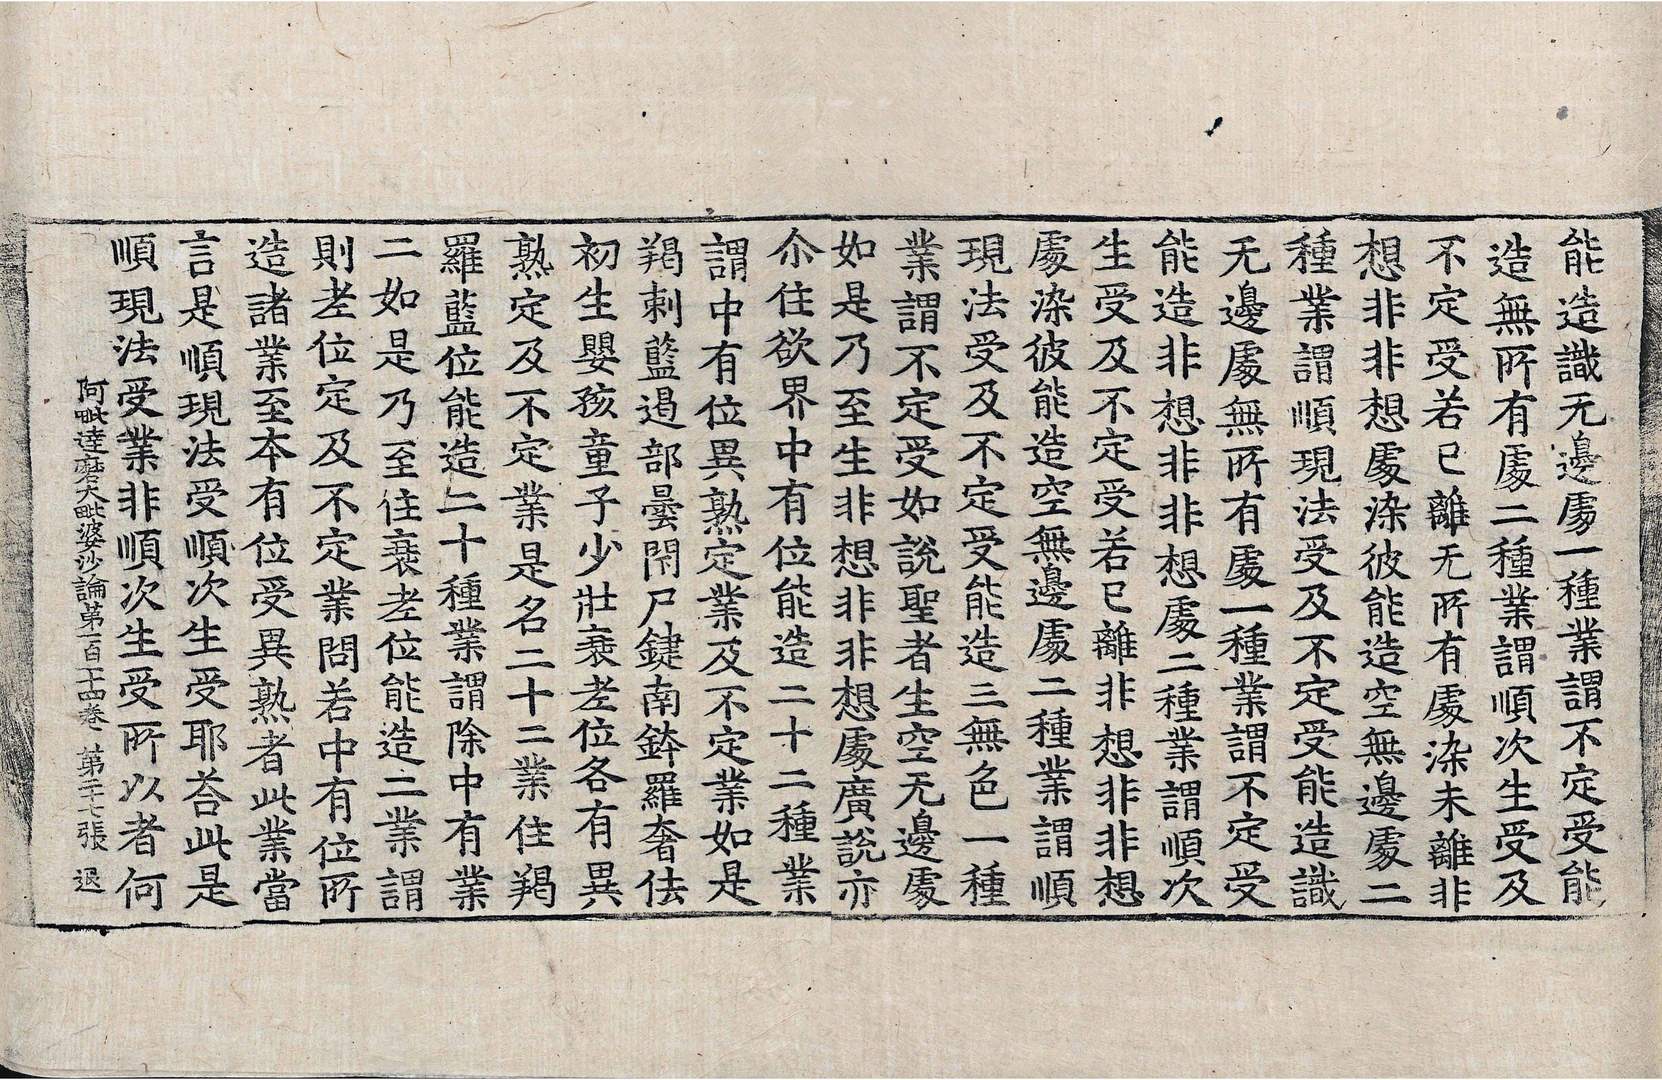 能造識无邊處一種業謂不定受能
造無所有處二種業謂順次生受及
不定受若已離无所有處染未離非
想非非想處染彼能造空無邊處二
種業謂順現法受及不定受能造識
无邊處無所有處一種業謂不定受
能造非想非非想處二種業謂順次
生受及不定受若已離非想非非想
處染彼能造空無邊處二種業謂順
現法受及不定受能造三無色一種
業謂不定受如說聖者生空无邊處
如是乃至生非想非非想處廣說亦
尒住欲界中有位能造二十二種業
謂中有位異熟定業及不定業如是
羯剌藍遏部曇閇尸鍵南鉢羅奢佉
初生嬰孩童子少壯衰老位各有異
熟定及不定業是名二十二業住羯
羅藍位能造二十種業謂除中有業
二如是乃至住衰老位能造二業謂
則老位定及不定業問若中有位所
造諸業至本有位受異熟者此業當
言是順現法受順次生受耶荅此是
順現法受業非順次生受所以者何
阿毗達磨大毗婆沙論第一百一十四卷 第二十七張 退